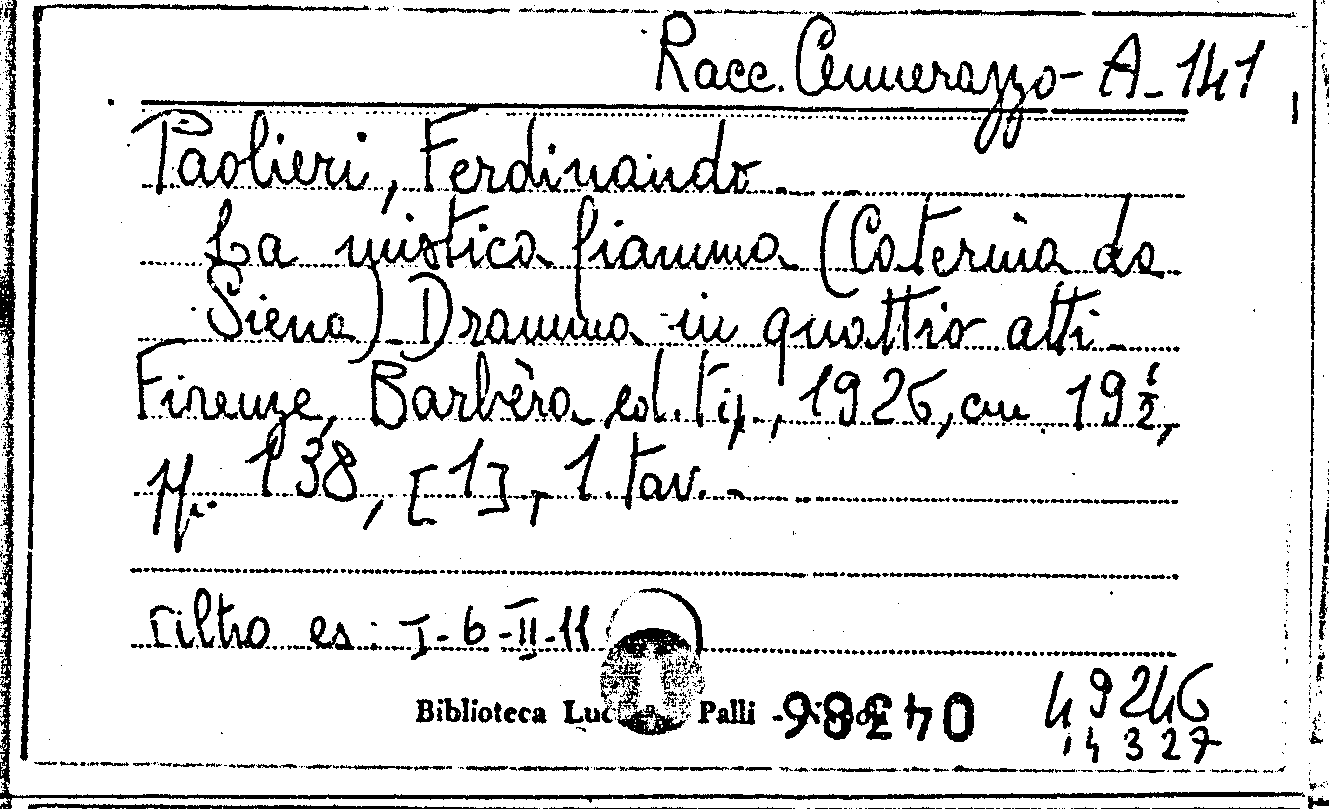 Racc. Cennerazzo - A - 141
Paolieri, Ferdinando.
La mistica fiamma (Caterina da
Siena) - Dramma in quattro atti -
Firenze, Barbèra ed. tip., 1926, cm 19 1/2,
pp. 138, [1], 1 tav. -
altro es: I-6-II-11
Biblioteca Luc Palli -
04386
49246
14327